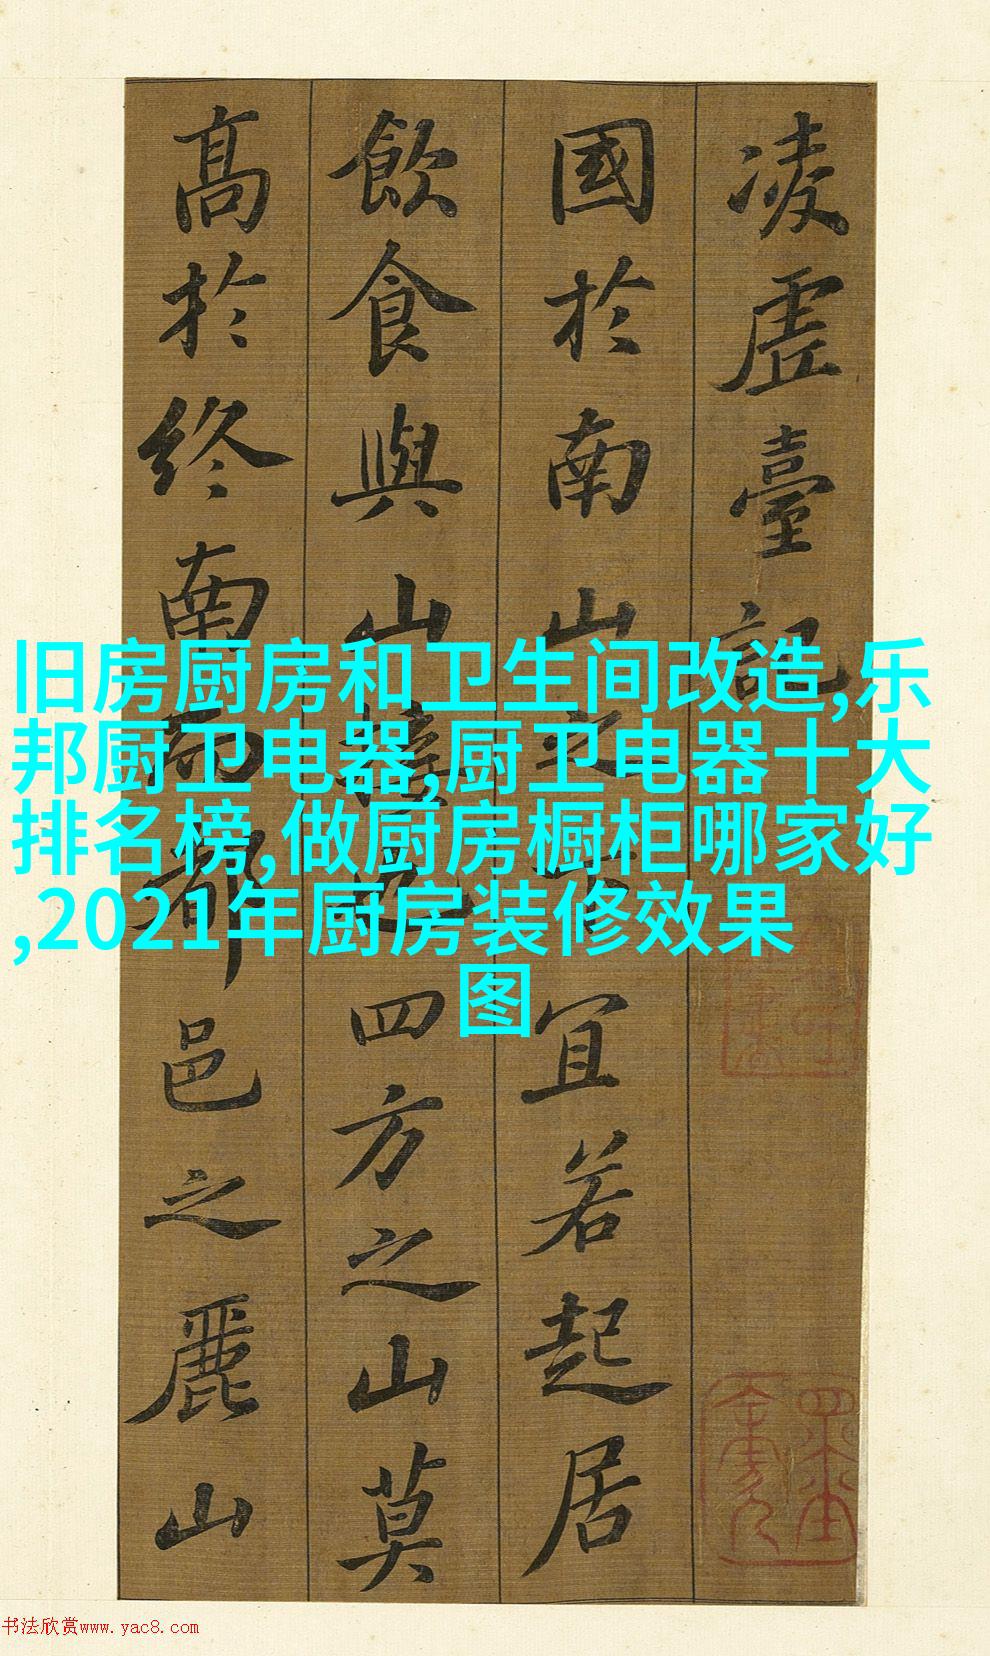 凌虛臺記
國於南山之下宜若起居
飲食與山接也四方之山莫
高於終南而都邑之麗山
旧房厨房和卫生间改造,乐
邦厨卫电器,厨卫电器十大
排名榜,做厨房橱柜哪家好
,2021年厨房装修效果
图
书法欣赏www.yac8.com